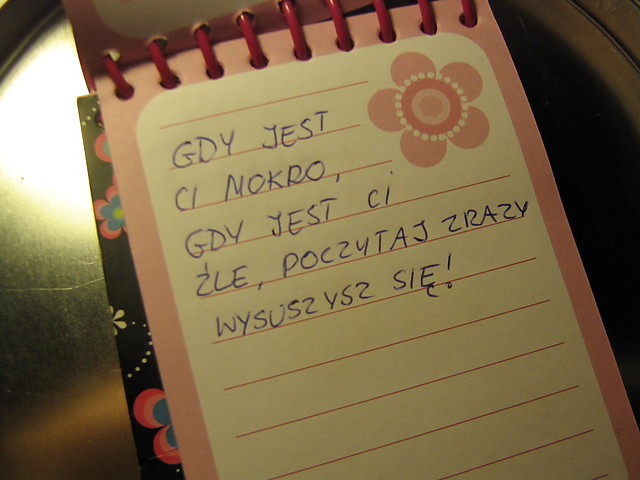 GDY JEST
CI MOKRO,
GDY JEST CI
ŹLE, POCZYTAJ ZRAZY
WYSUSZYSZ SIĘ!